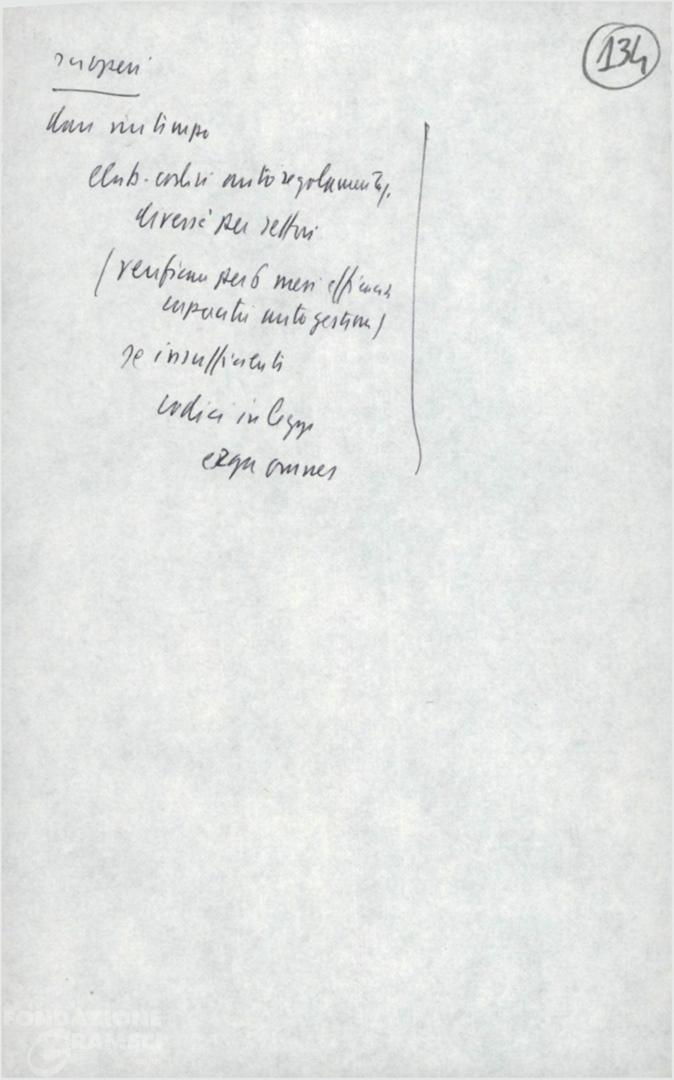 134
scioperi
dare un tempo
elab. codici autoregolamentaz.
diversi per settori
(verificare per 6 mesi efficacia
capacità autogestione)
se insufficienti
codici in legge
erga omnes
FONDAZIONE
GRAMSCI